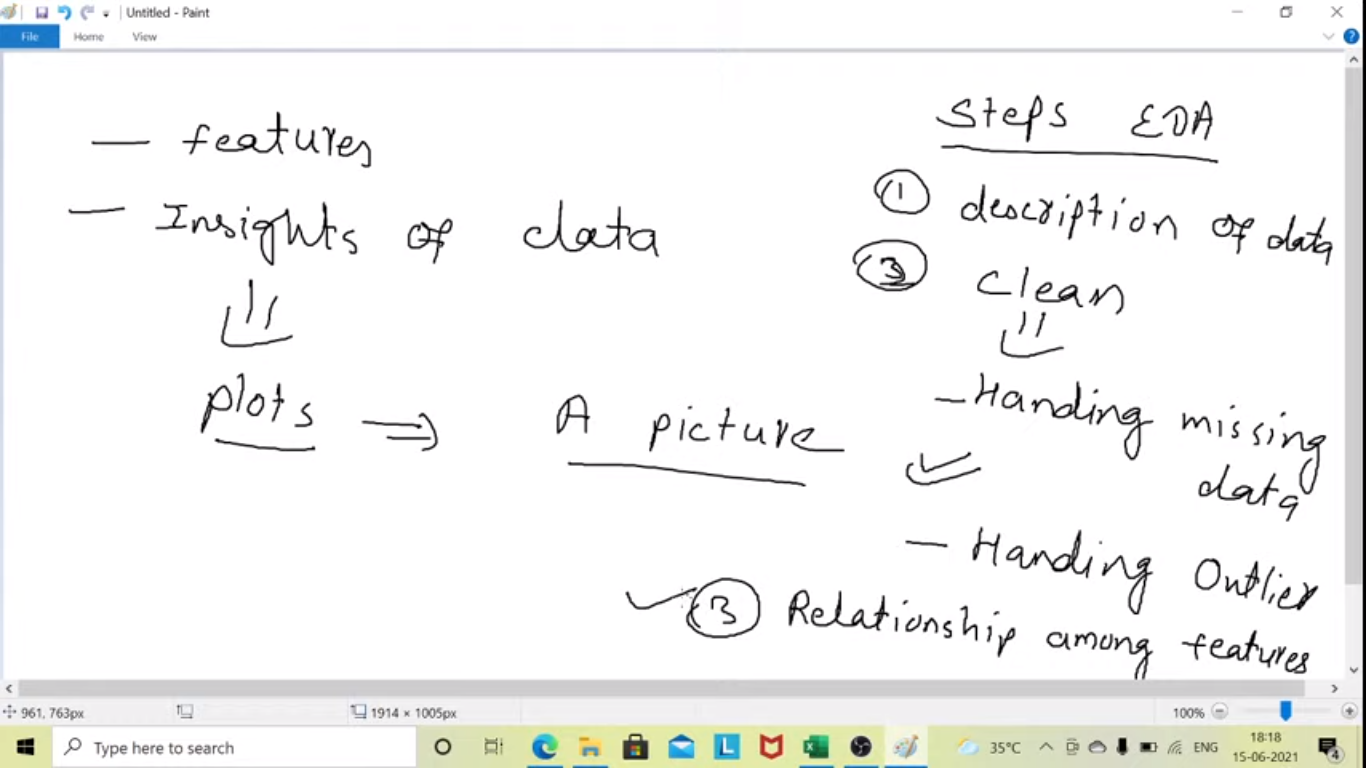 Untitled - Paint
File Home View
— features
— Insights of data
plots ⇒ A picture
Steps EDA
① description of data
Clean
- Handing missing
data
— Handing Outlier
③ Relationship among features
961, 763px
1914 × 1005px
100%
Type here to search
35°C
ENG
18:18
15-06-2021
4